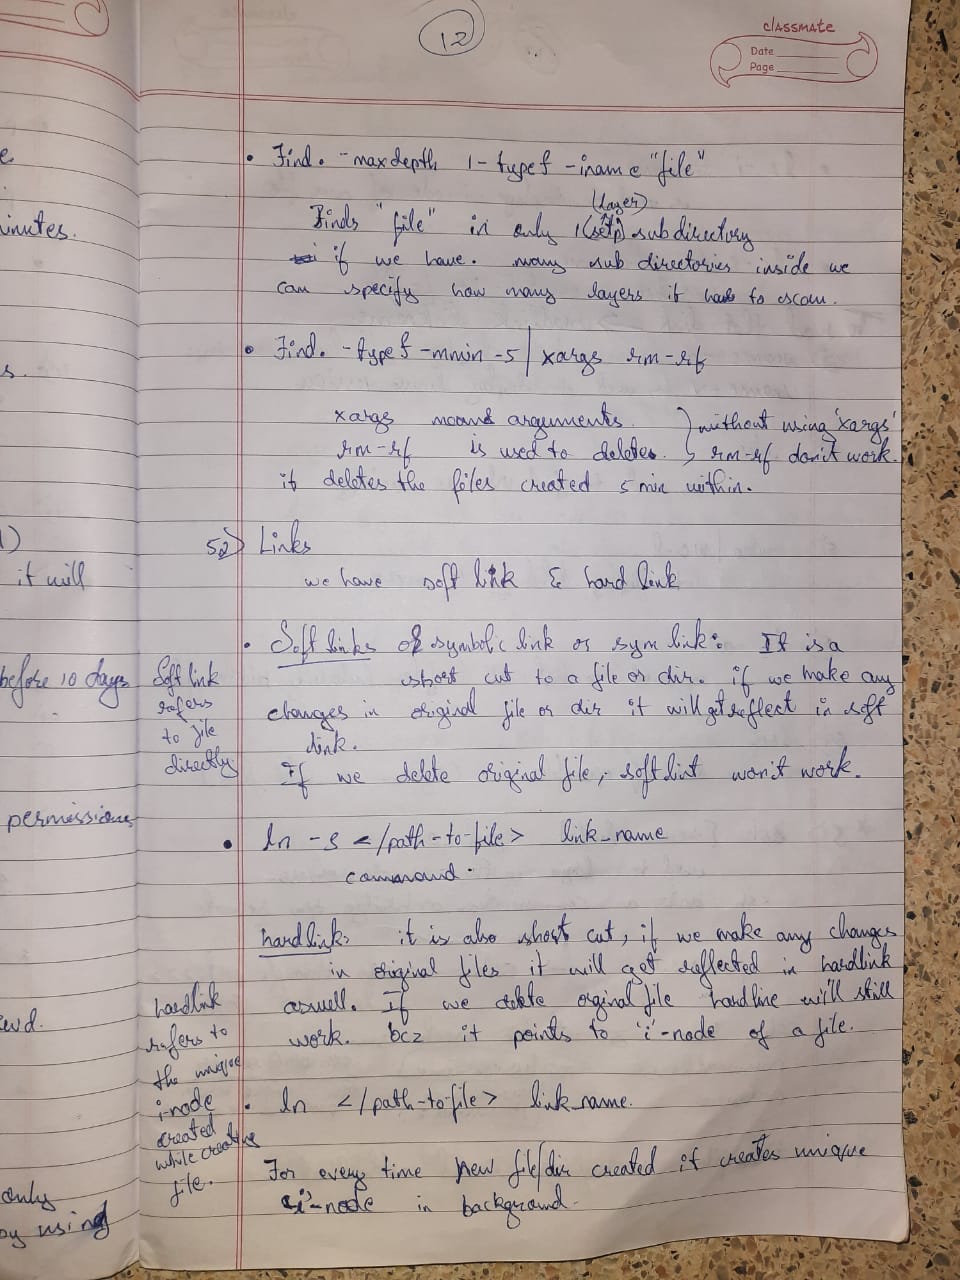 12
classmate
Date
Page
e
inutes.
s.
1)
it will
before 10 days
permissions
only
by using
• Find. -maxdepth 1 -type f -iname "file"
(layer)
Finds "file" in only 1 subdirectory
if we have. many sub directories inside we
can specify how many layers it have to scan.
• Find. -type f -mmin -5 | xargs rm -rf
xargs means arguments. } without using 'xargs'
rm -rf is used to delete. rm -rf don't work.
it deletes the files created 5 min within.
52) Links
we have soft link & hard link
• Soft links or symbolic link or sym link: It is a
short cut to a file or dir. if we make any
changes in original file or dir it will get reflect in soft
link.
If we delete original file, soft lint won't work.
Soft link
refers
to file
directly
• ln -s </path-to-file> link_name
command.
hardlink: it is also short cut, if we make any changes
in original files it will get reflected in hardlink
aswell. If we delete orginal file hardline will still
work. bcz it points to 'i'-node of a file.
hardlink
refers to
the unique
i-node
created
while creating
file.
• ln </path-to-file> link_name.
For every time new file/dir created it creates unique
'i'-node in background.